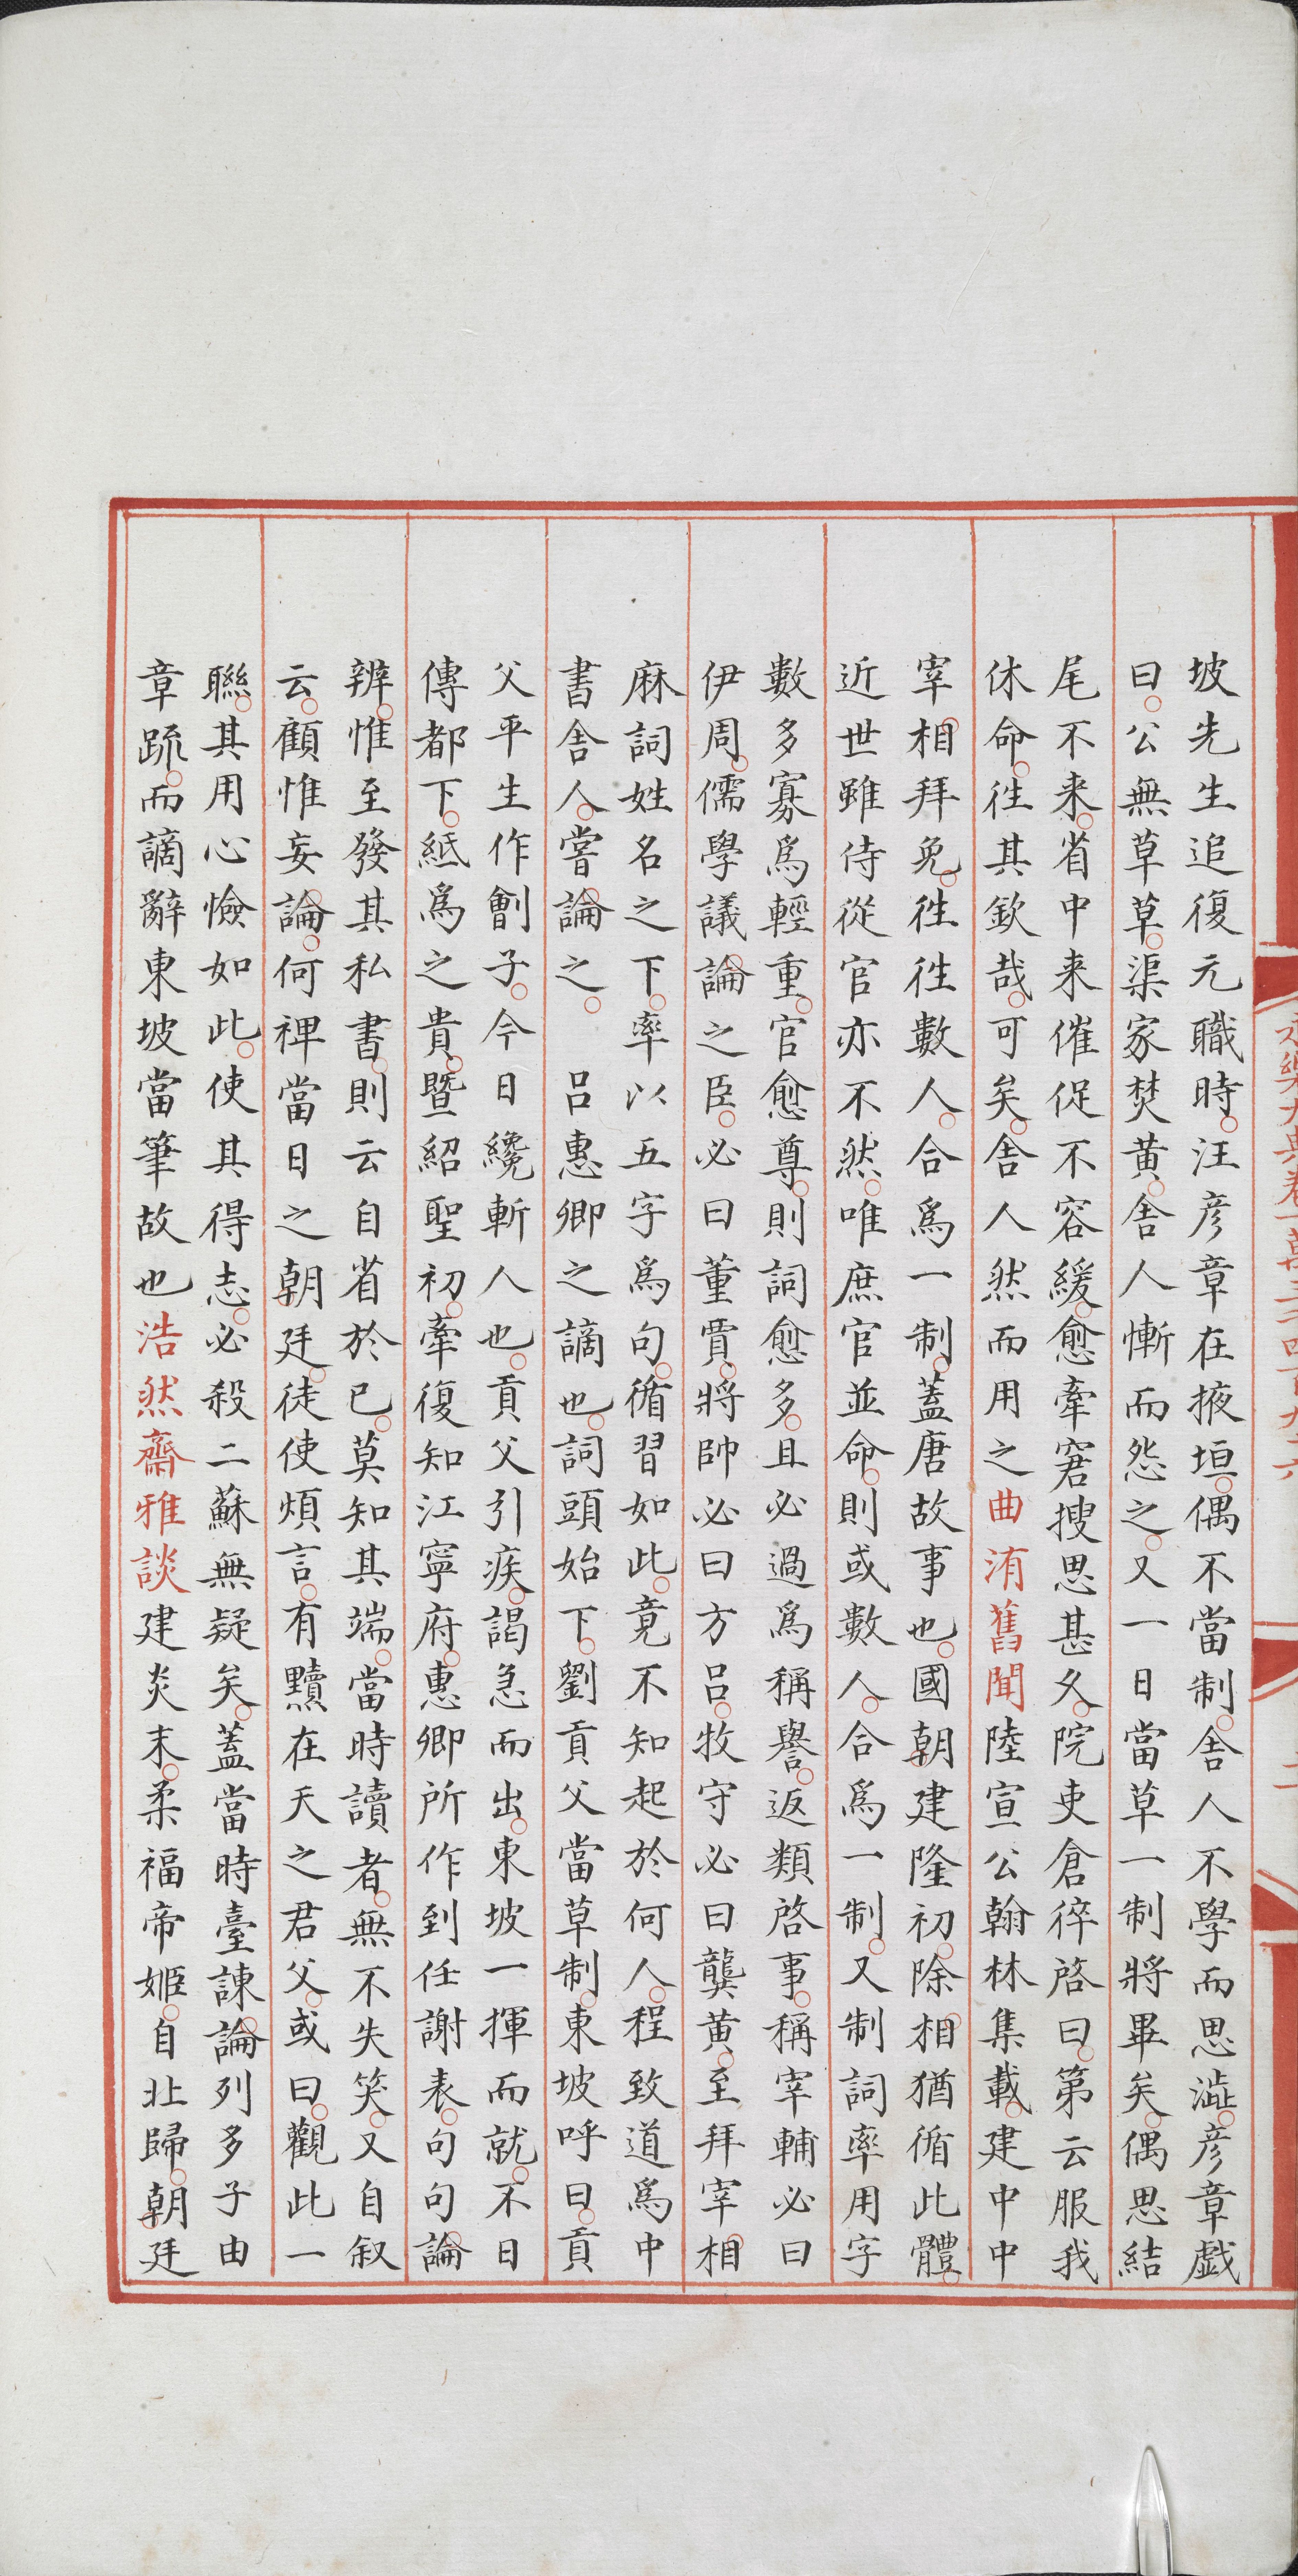 坡先生追復元職時汪彦章在掖垣偶不當制舎人不學而思澁彦章戯
曰公無草草渠家焚黄舎人慚而怨之又一日當草一制將畢矣偶思結
尾不来省中来催促不容緩愈牽窘搜思甚久院吏倉猝啓曰第云服我
休命徃其欽哉可矣舎人然而用之曲洧舊聞陸宣公翰林集載建中中
宰相拜免徃徃數人合爲一制蓋唐故事也國朝建隆初除相猶循此體
近世雖侍從官亦不然唯庶官並命則或數人合爲一制又制詞率用字
數多寡爲輕重官愈尊則詞愈多且必過爲稱譽返類啓事稱宰輔必曰
伊周儒學議論之臣必曰董賈將帥必曰方吕牧守必曰龔黄至拜宰相
麻詞姓名之下率以五字爲句循習如此竟不知起於何人程致道爲中
書舎人嘗論之 吕惠卿之謫也詞頭始下劉貢父當草制東坡呼曰貢
父平生作劊子今日纔斬人也貢父引疾謁急而出東坡一揮而就不日
傳都下紙爲之貴暨紹聖初牽復知江寧府惠卿所作到任謝表句句論
辨惟至發其私書則云自省於已莫知其端當時讀者無不失笑又自叙
云顧惟妄論何禆當日之朝廷徒使煩言有黷在天之君父或曰觀此一
聯其用心憸如此使其得志必殺二蘇無疑矣蓋當時臺諫論列多子由
章疏而謫辭東坡當筆故也浩然齋雅談建炎末柔福帝姬自北歸朝廷
永樂大典卷一萬三千四百九十六
二